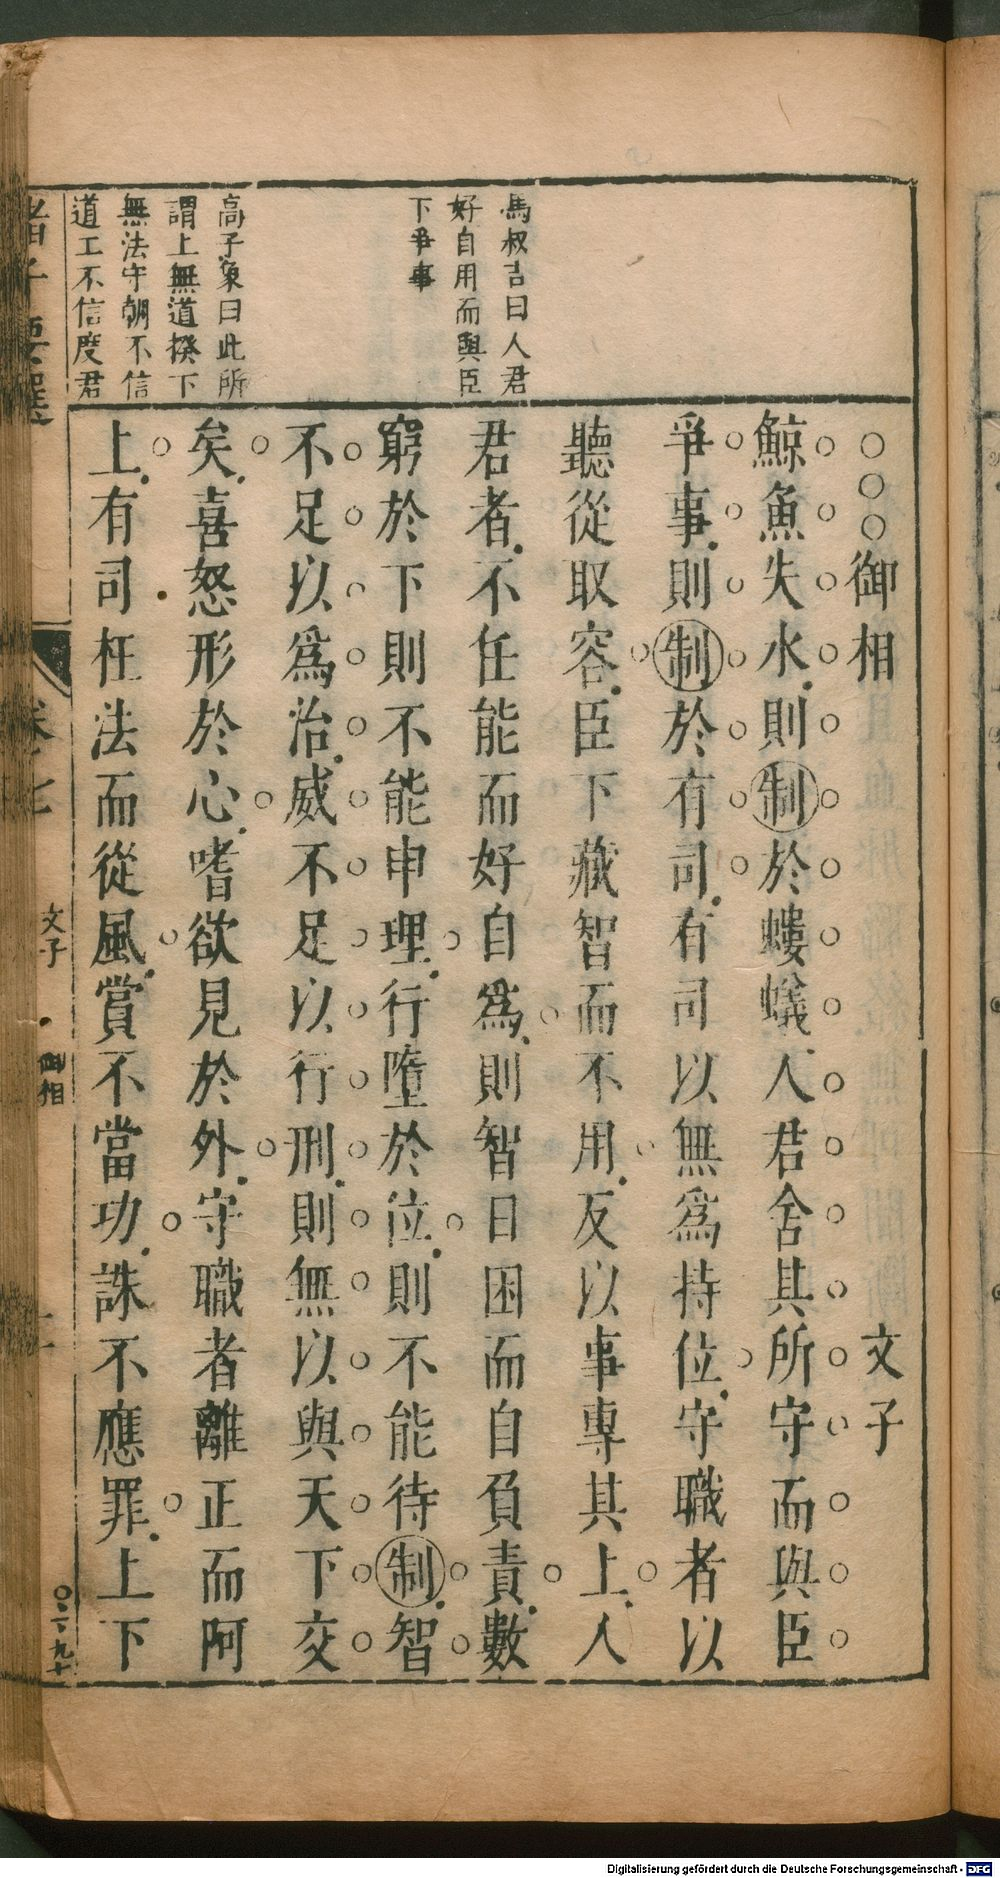 馮叔吉曰人君
好自用而與臣
下爭事
高子象曰此所
謂上無道揆下
無法守朝不信
道工不信度君
○○○御相　文子
鯨魚失水則制於螻蟻人君舍其所守而與臣
爭事則制於有司有司以無爲持位守職者以
聽從取容臣下藏智而不用反以事專其上人
君者不任能而好自爲則智日困而自負責數
窮於下則不能申理行墮於位則不能待制智
不足以爲治威不足以行刑則無以與天下交
矣喜怒形於心嗜欲見於外守職者離正而阿
上有司枉法而從風賞不當功誅不應罪上下
諸子要選
卷七
文子
御相
Digitalisierung gefördert durch die Deutsche Forschungsgemeinschaft - DFG